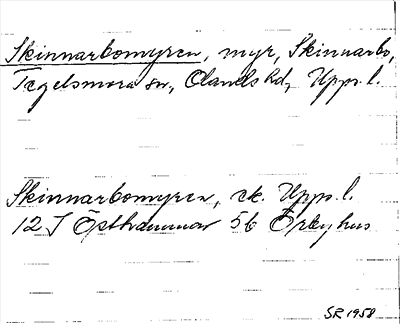 Skinnarbomyren, myr, Skinnarbo,
Tegelsmora sn, Olands hd, Uppl.
Skinnarbomyren, ek. Uppl.
12 I Östhammar 5b Örbyhus
SR 1958